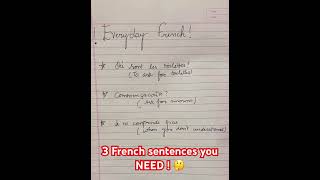 Everyday French!
* Où sont les toilettes?
(To ask for toilettes)
* Comment ça va?
(ask for
* Je ne comprends pas
(when you don't understand)
3 French sentences you
NEED ! 🤔